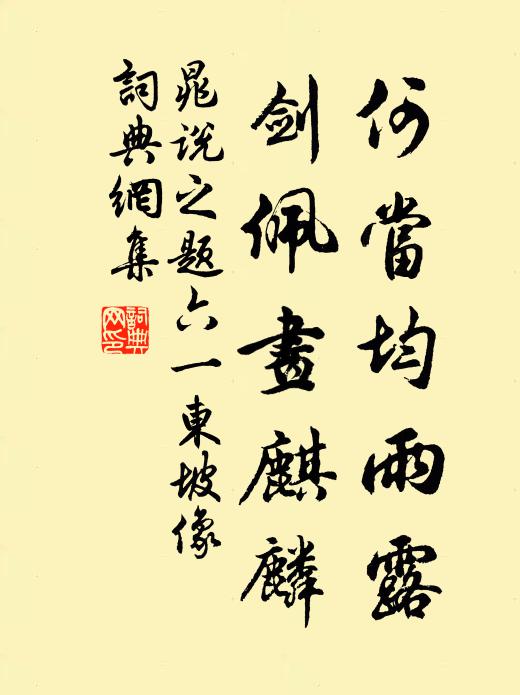 何當均雨露
劍佩畫麒麟
晁說之題六一東坡像
詞典網集
詞典
网印